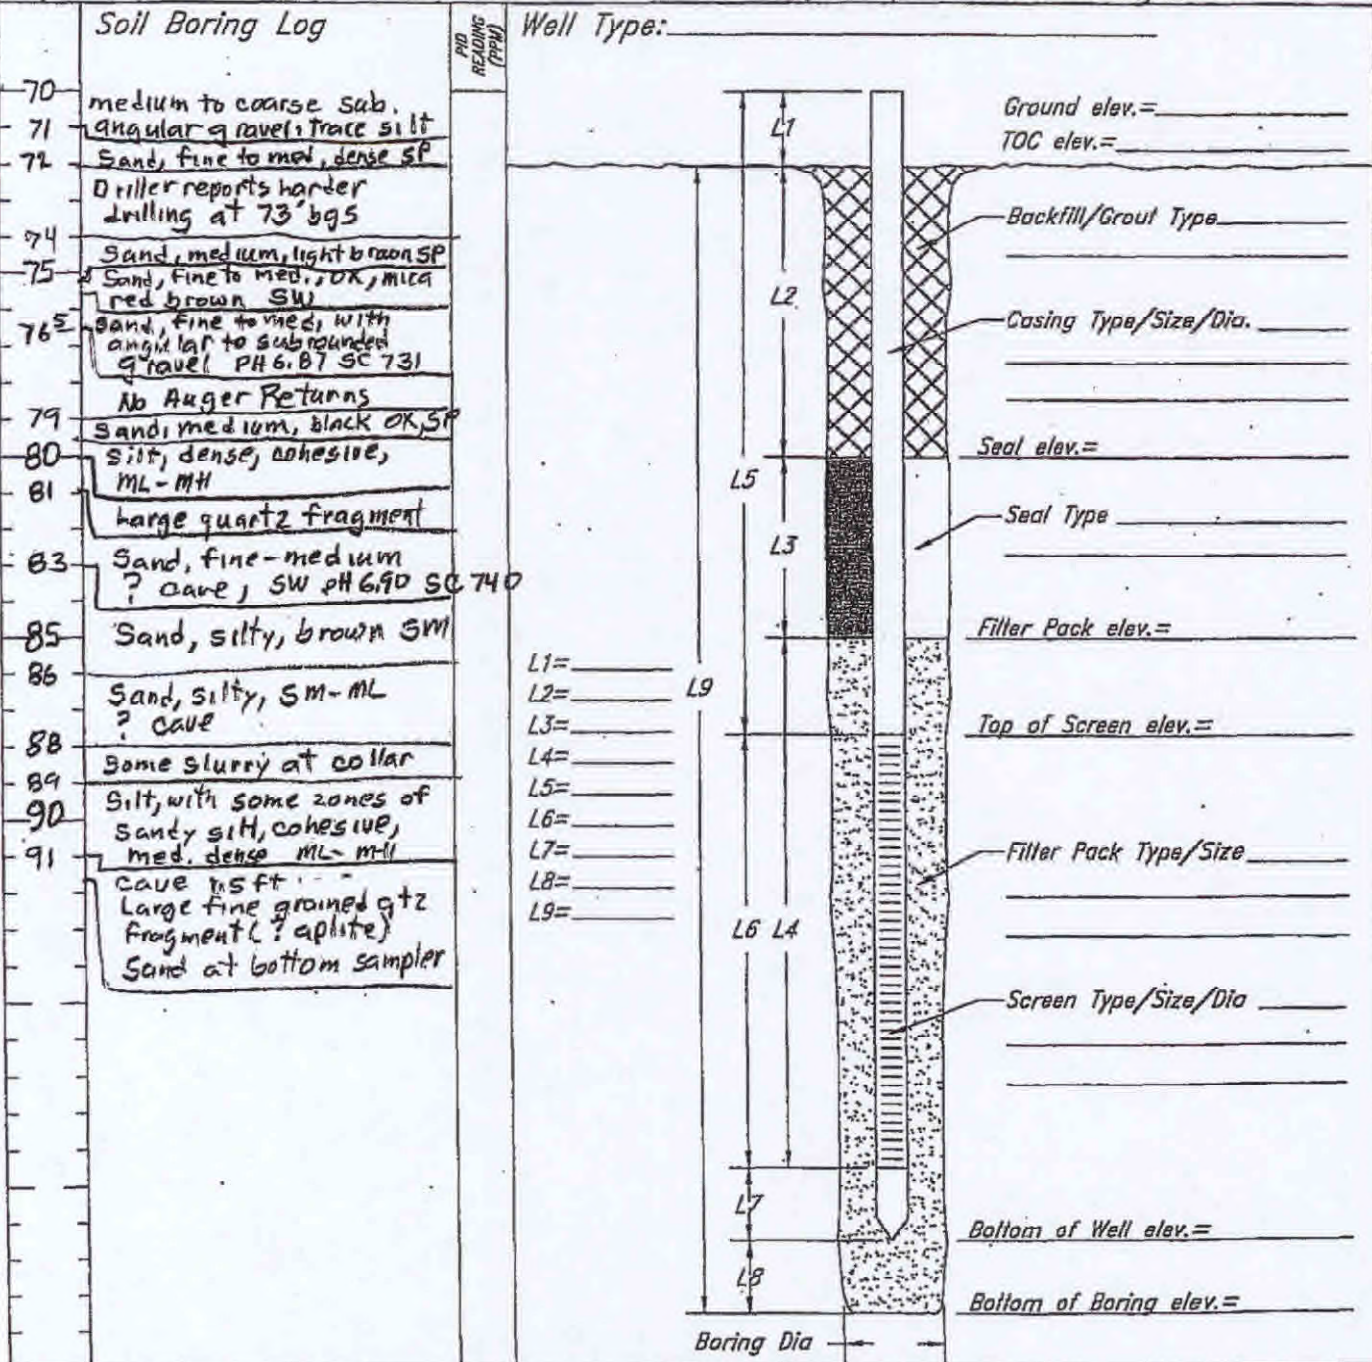 Soil Boring Log
PID READING (PPM)
Well Type:
70
medium to coarse sub.
71
angular gravel, trace silt
72
Sand, fine to med, dense SP
Driller reports harder
drilling at 73' bgs
74
Sand, medium, light brown SP
75
Sand, fine to med., OX, mica
red brown SW
76.5
Sand, fine to med, with
angular to subrounded
gravel PH 6.87 SC 731
No Auger Returns
79
Sand, medium, black OX, SP
80
Silt, dense, cohesive,
ML-MH
81
Large quartz fragment
83
Sand, fine-medium
? cave, SW pH 6.90 SC 740
85
Sand, silty, brown SM
86
Sand, silty, SM-ML
? cave
88
Some slurry at collar
89
Silt, with some zones of
90
Sandy silt, cohesive,
91
med. dense ML-MH
cave
Large fine grained qtz
fragment (? aplite)
Sand at bottom sampler
L1=
L2=
L3=
L4=
L5=
L6=
L7=
L8=
L9=
L1
L2
L5
L3
L9
L6 L4
L7
L8
Boring Dia
Ground elev.=
TOC elev.=
Backfill/Grout Type
Casing Type/Size/Dia.
Seal elev.=
Seal Type
Filter Pack elev.=
Top of Screen elev.=
Filter Pack Type/Size
Screen Type/Size/Dia
Bottom of Well elev.=
Bottom of Boring elev.=